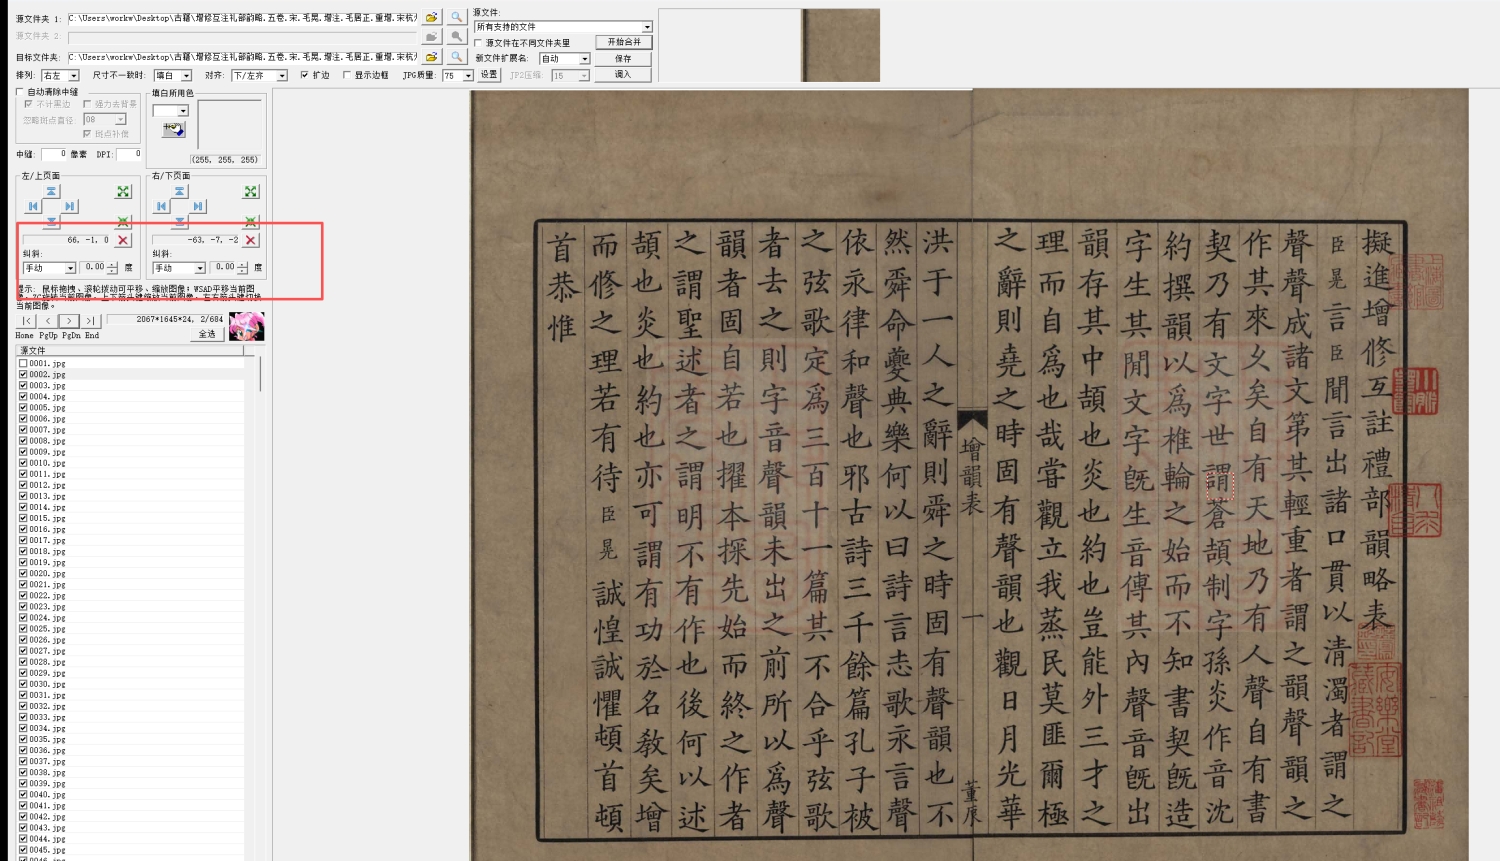 源文件夹 1: C:\Users\workw\Desktop\古籍\增修互注礼部韵略.五卷.宋.毛晃.增注.毛居正.重增.宋杭
源文件夹 2
目标文件夹: C:\Users\workw\Desktop\古籍\增修互注礼部韵略.五卷.宋.毛晃.增注.毛居正.重增.宋杭
排列: 右左 尺寸不一致时: 填白 对齐: 下/左齐 扩边 显示边框 JPG质量: 75 设置 JP2压缩: 15 调入
源文件:
所有支持的文件
源文件在不同文件夹里 开始合并
新文件扩展名: 自动 保存
自动清除中缝
不计黑边 强力去背景
忽略斑点直径: 08
斑点补偿
中缝: 0 像素 DPI: 0
填白所用色
(255, 255, 255)
左/上页面
66, -1, 0
纠斜:
手动 0.00 度
右/下页面
-63, -7, -2
纠斜:
手动 0.00 度
提示: 鼠标拖拽、滚轮拨动可平移、缩放图像；WSAD平移当前图
当前图像。
|< < > >| 2067*1645*24, 2/684
Home PgUp PgDn End 全选
源文件
0001.jpg
0002.jpg
0003.jpg
0004.jpg
0005.jpg
0006.jpg
0007.jpg
0008.jpg
0009.jpg
0010.jpg
0011.jpg
0012.jpg
0013.jpg
0014.jpg
0015.jpg
0016.jpg
0017.jpg
0018.jpg
0019.jpg
0020.jpg
0021.jpg
0022.jpg
0023.jpg
0024.jpg
0025.jpg
0026.jpg
0027.jpg
0028.jpg
0029.jpg
0030.jpg
0031.jpg
0032.jpg
0033.jpg
0034.jpg
0035.jpg
0036.jpg
0037.jpg
0038.jpg
0039.jpg
0040.jpg
0041.jpg
0042.jpg
0043.jpg
0044.jpg
0045.jpg
擬進增修互註禮部韻略表
臣晃言臣聞言出諸口貫以清濁者謂之
聲聲成諸文第其輕重者謂之韻聲韻之
作其來久矣自有天地乃有人聲自有書
契乃有文字世謂蒼頡制字孫炎作音沈
約撰韻以為椎輪之始而不知書契旣造
字生其閒文字旣生音傳其內聲音旣出
韻存其中頡也炎也約也豈能外三才之
理而自為也哉嘗觀立我蒸民莫匪爾極
之辭則堯之時固有聲韻也觀日月光華
增韻表
一
董辰
洪于一人之辭則舜之時固有聲韻也不
然舜命夔典樂何以曰詩言志歌永言聲
依永律和聲也邪古詩三千餘篇孔子被
之弦歌定為三百十一篇其不合乎弦歌
者去之則字音聲韻未出之前所以為聲
韻者固自若也擢本探先始而終之作者
之謂聖述者之謂明不有作也後何以述
頡也炎也約也亦可謂有功於名教矣增
而修之理若有待臣晃誠惶誠懼頓首頓
首恭惟